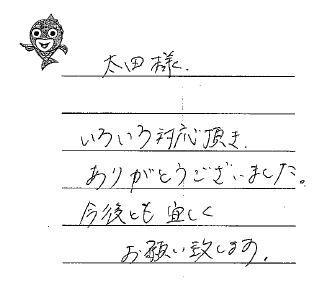 太田様.
いろいろ対応頂き.
ありがとうございました。
今後とも宜しく
お願い致します.